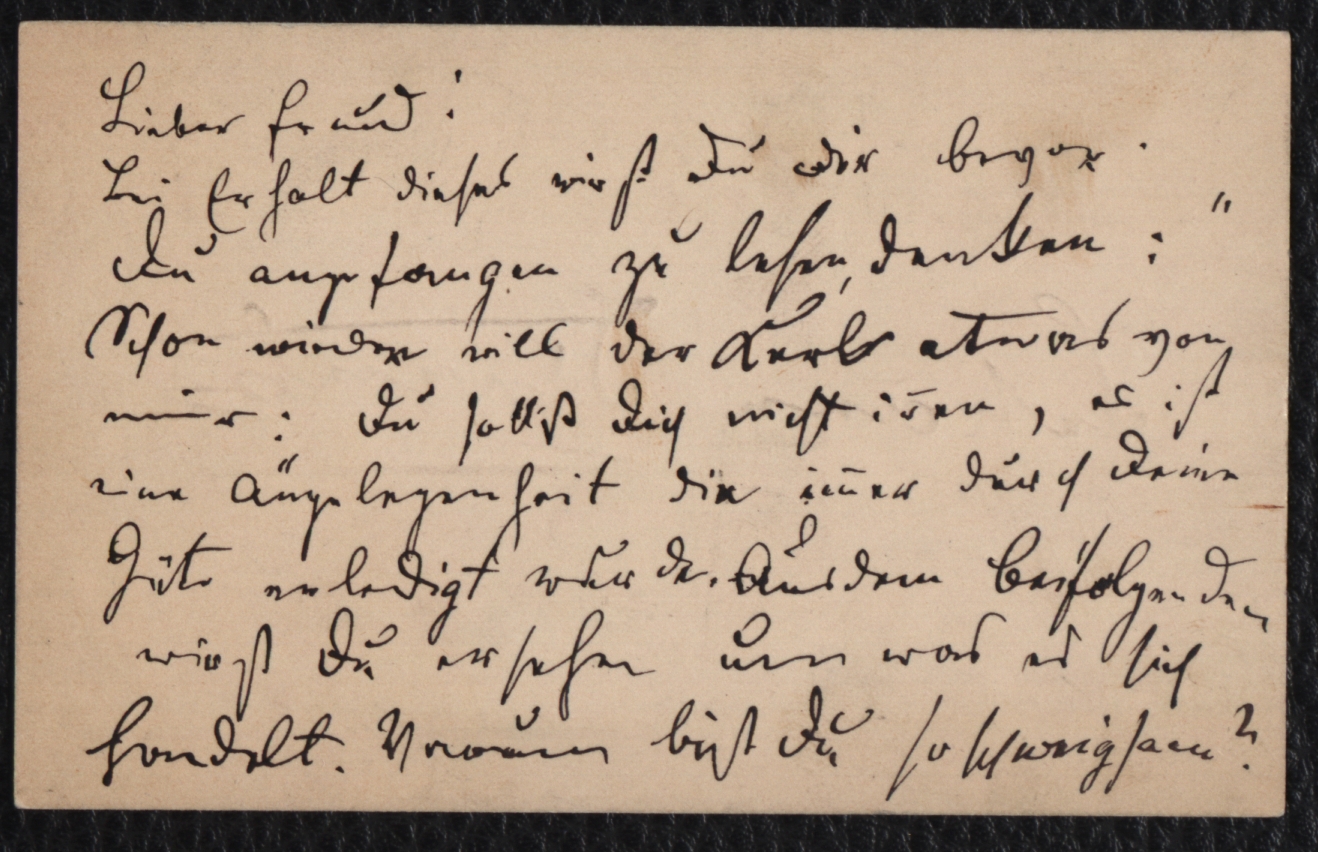 Lieber Freund!
Bei Erhalt dieses wirst Du Dir bevor
Du angefangen zu lesen, denken: "
Schon wieder will der Kerl etwas von
mir: Du sollst Dich nicht iren, es ist
eine Angelegenheit die im̄er durch Deine
Güte erledigt wurde. Aus dem beifolgenden
wirst Du ersehen um was es sich
handelt. Warum bist Du so schweigsam?